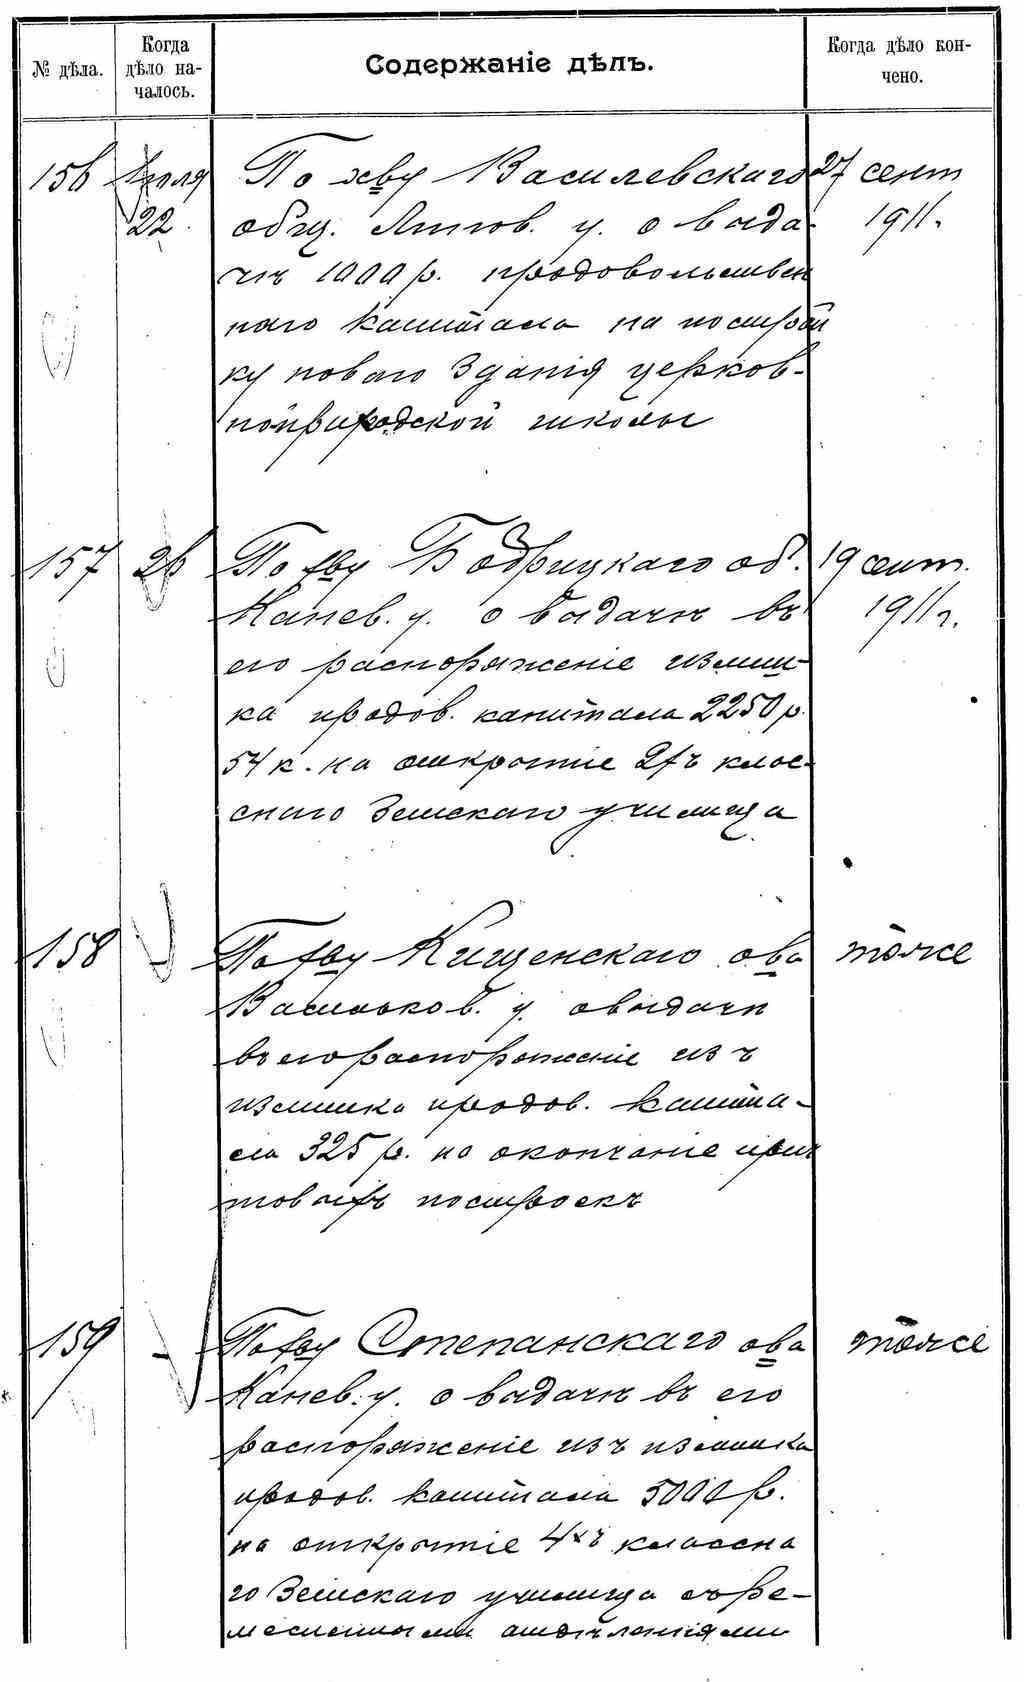 № дѣла.
Когда дѣло на-чалось.
Содержаніе дѣлъ.
Когда дѣло кон-чено.
156 Іюля 22
По хву Василевскаго
общ. Липов. у. о выда-
чѣ 1000 р. продовольствен
наго капитала на построй
ку новаго зданія церков-
ноприходской школы
27 сент
1911.
157 26
По хву Бодрицкаго об.
Канев. у. о выдачѣ въ
его распоряженіе излиш-
ка продов. капитала 2250 р.
54 к. на открытіе 2хъ клас-
снаго Земскаго училища
19 сент.
1911 г.
158 -
По хву Кищенскаго ова
Васильков. у. о выдачѣ
въ его распоряженіе изъ
излишка продов. капита-
ла 325 р. на окончаніе прич
товыхъ построекъ
тоже
159 -
По хву Степанскаго ова
Канев. у. о выдачѣ въ его
распоряженіе изъ излишка
продов. капитала 5000 р.
на открытіе 4хъ классна
го Земскаго училища съ ре-
месленными отдѣленіями
тоже